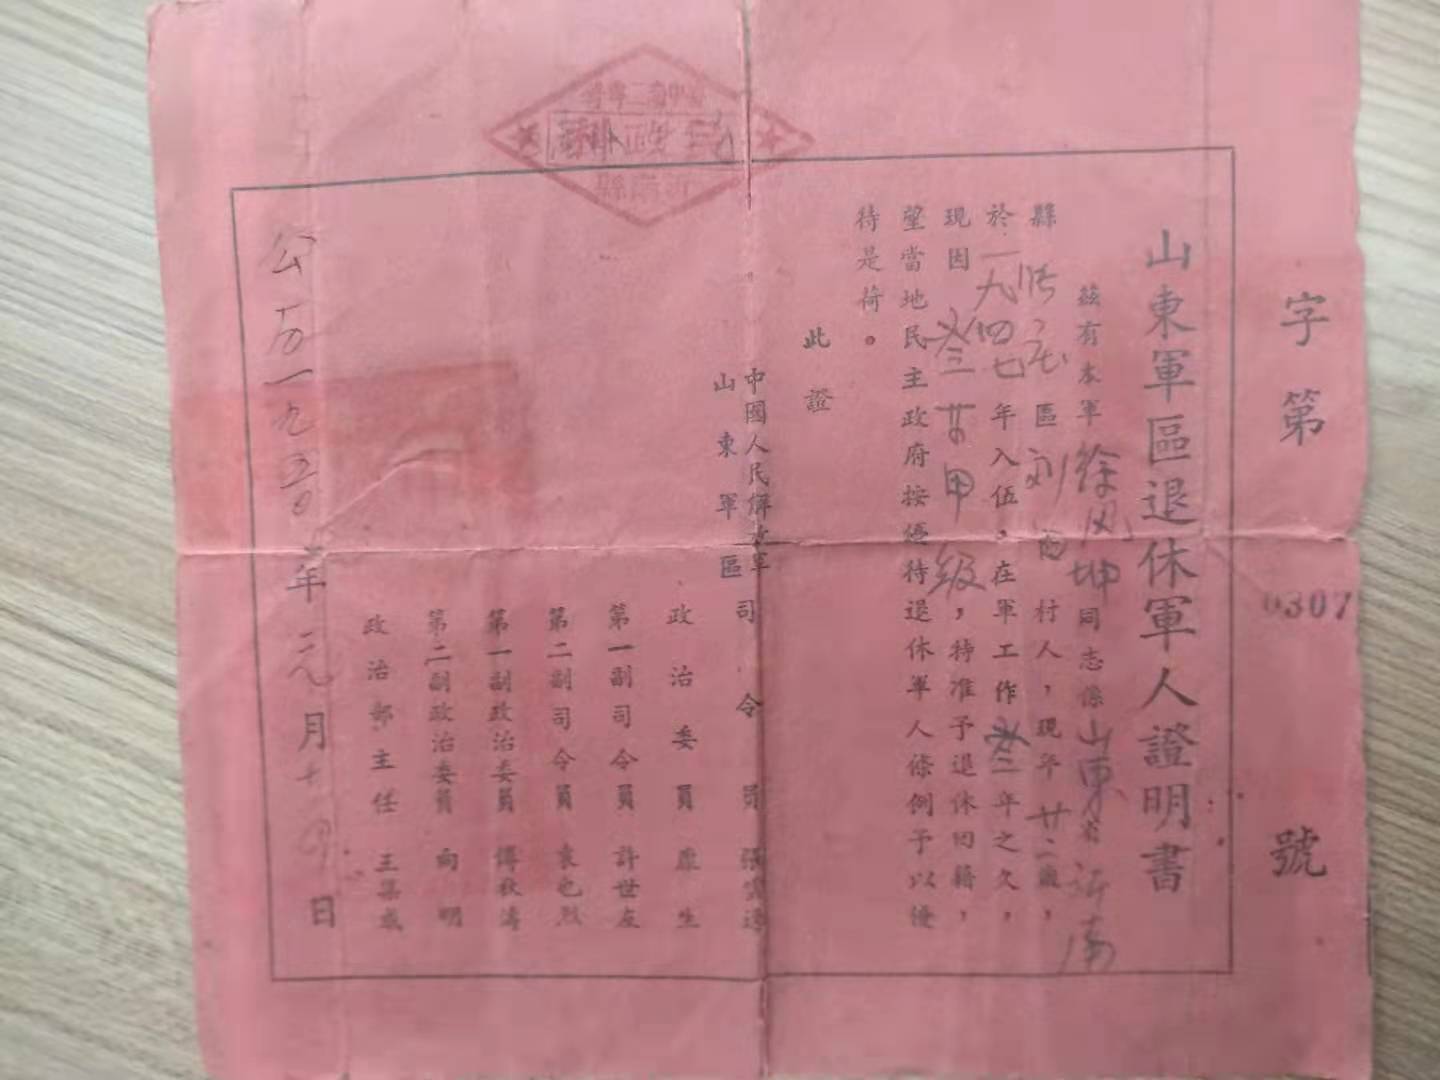 字第0307號
山東軍區退休軍人證明書
茲有本軍徐风坤同志係山東省沂南
縣區刘村人，現年廿二歲，
於一九四七年入伍。在軍工作叁年之久，
現因叁廿甲级，特准予退休回籍，
望當地民主政府按優待退休軍人條例予以優
待是荷。
此證
中國人民解放軍
山東軍區
司令員 張雲逸
政治委員 康生
第一副司令員 許世友
第二副司令員 袁也烈
第一副政治委員 傅秋濤
第二副政治委員 向明
政治部主任 王集成
公历一九五〇年元月十四日
縣